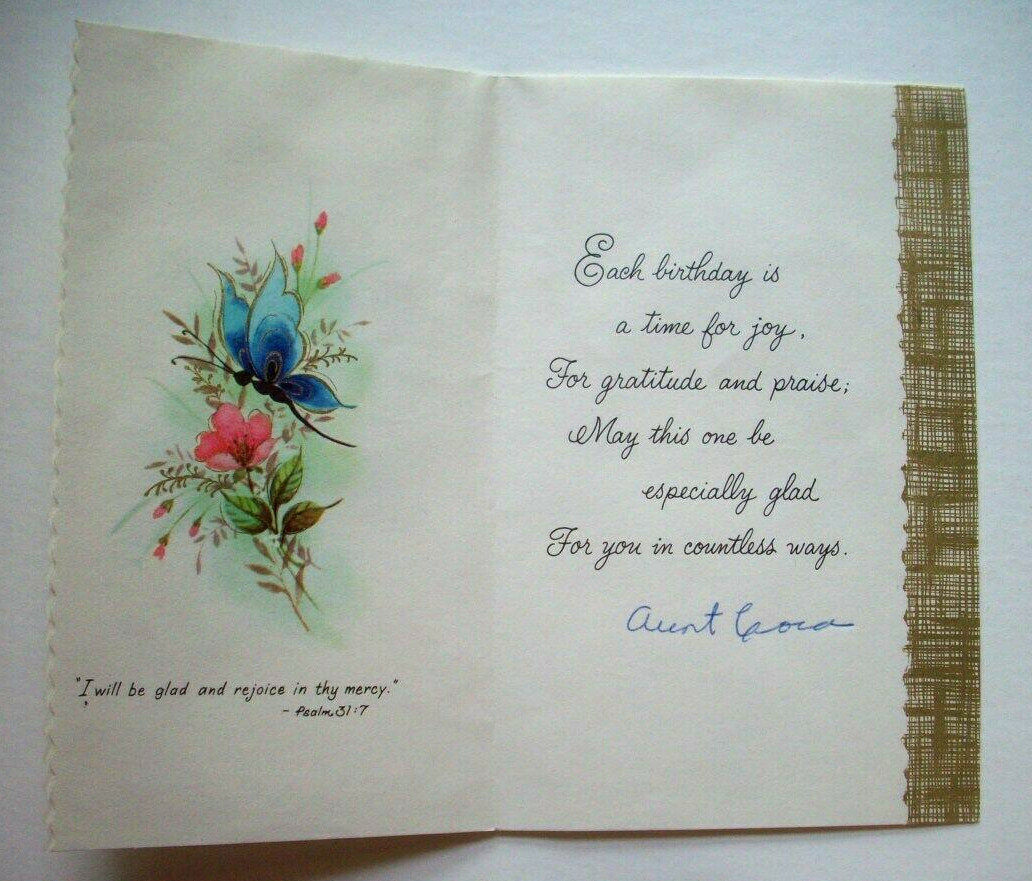 "I will be glad and rejoice in thy mercy."
- Psalm 31:7
Each birthday is
a time for joy,
For gratitude and praise;
May this one be
especially glad
For you in countless ways.
Aunt Cora